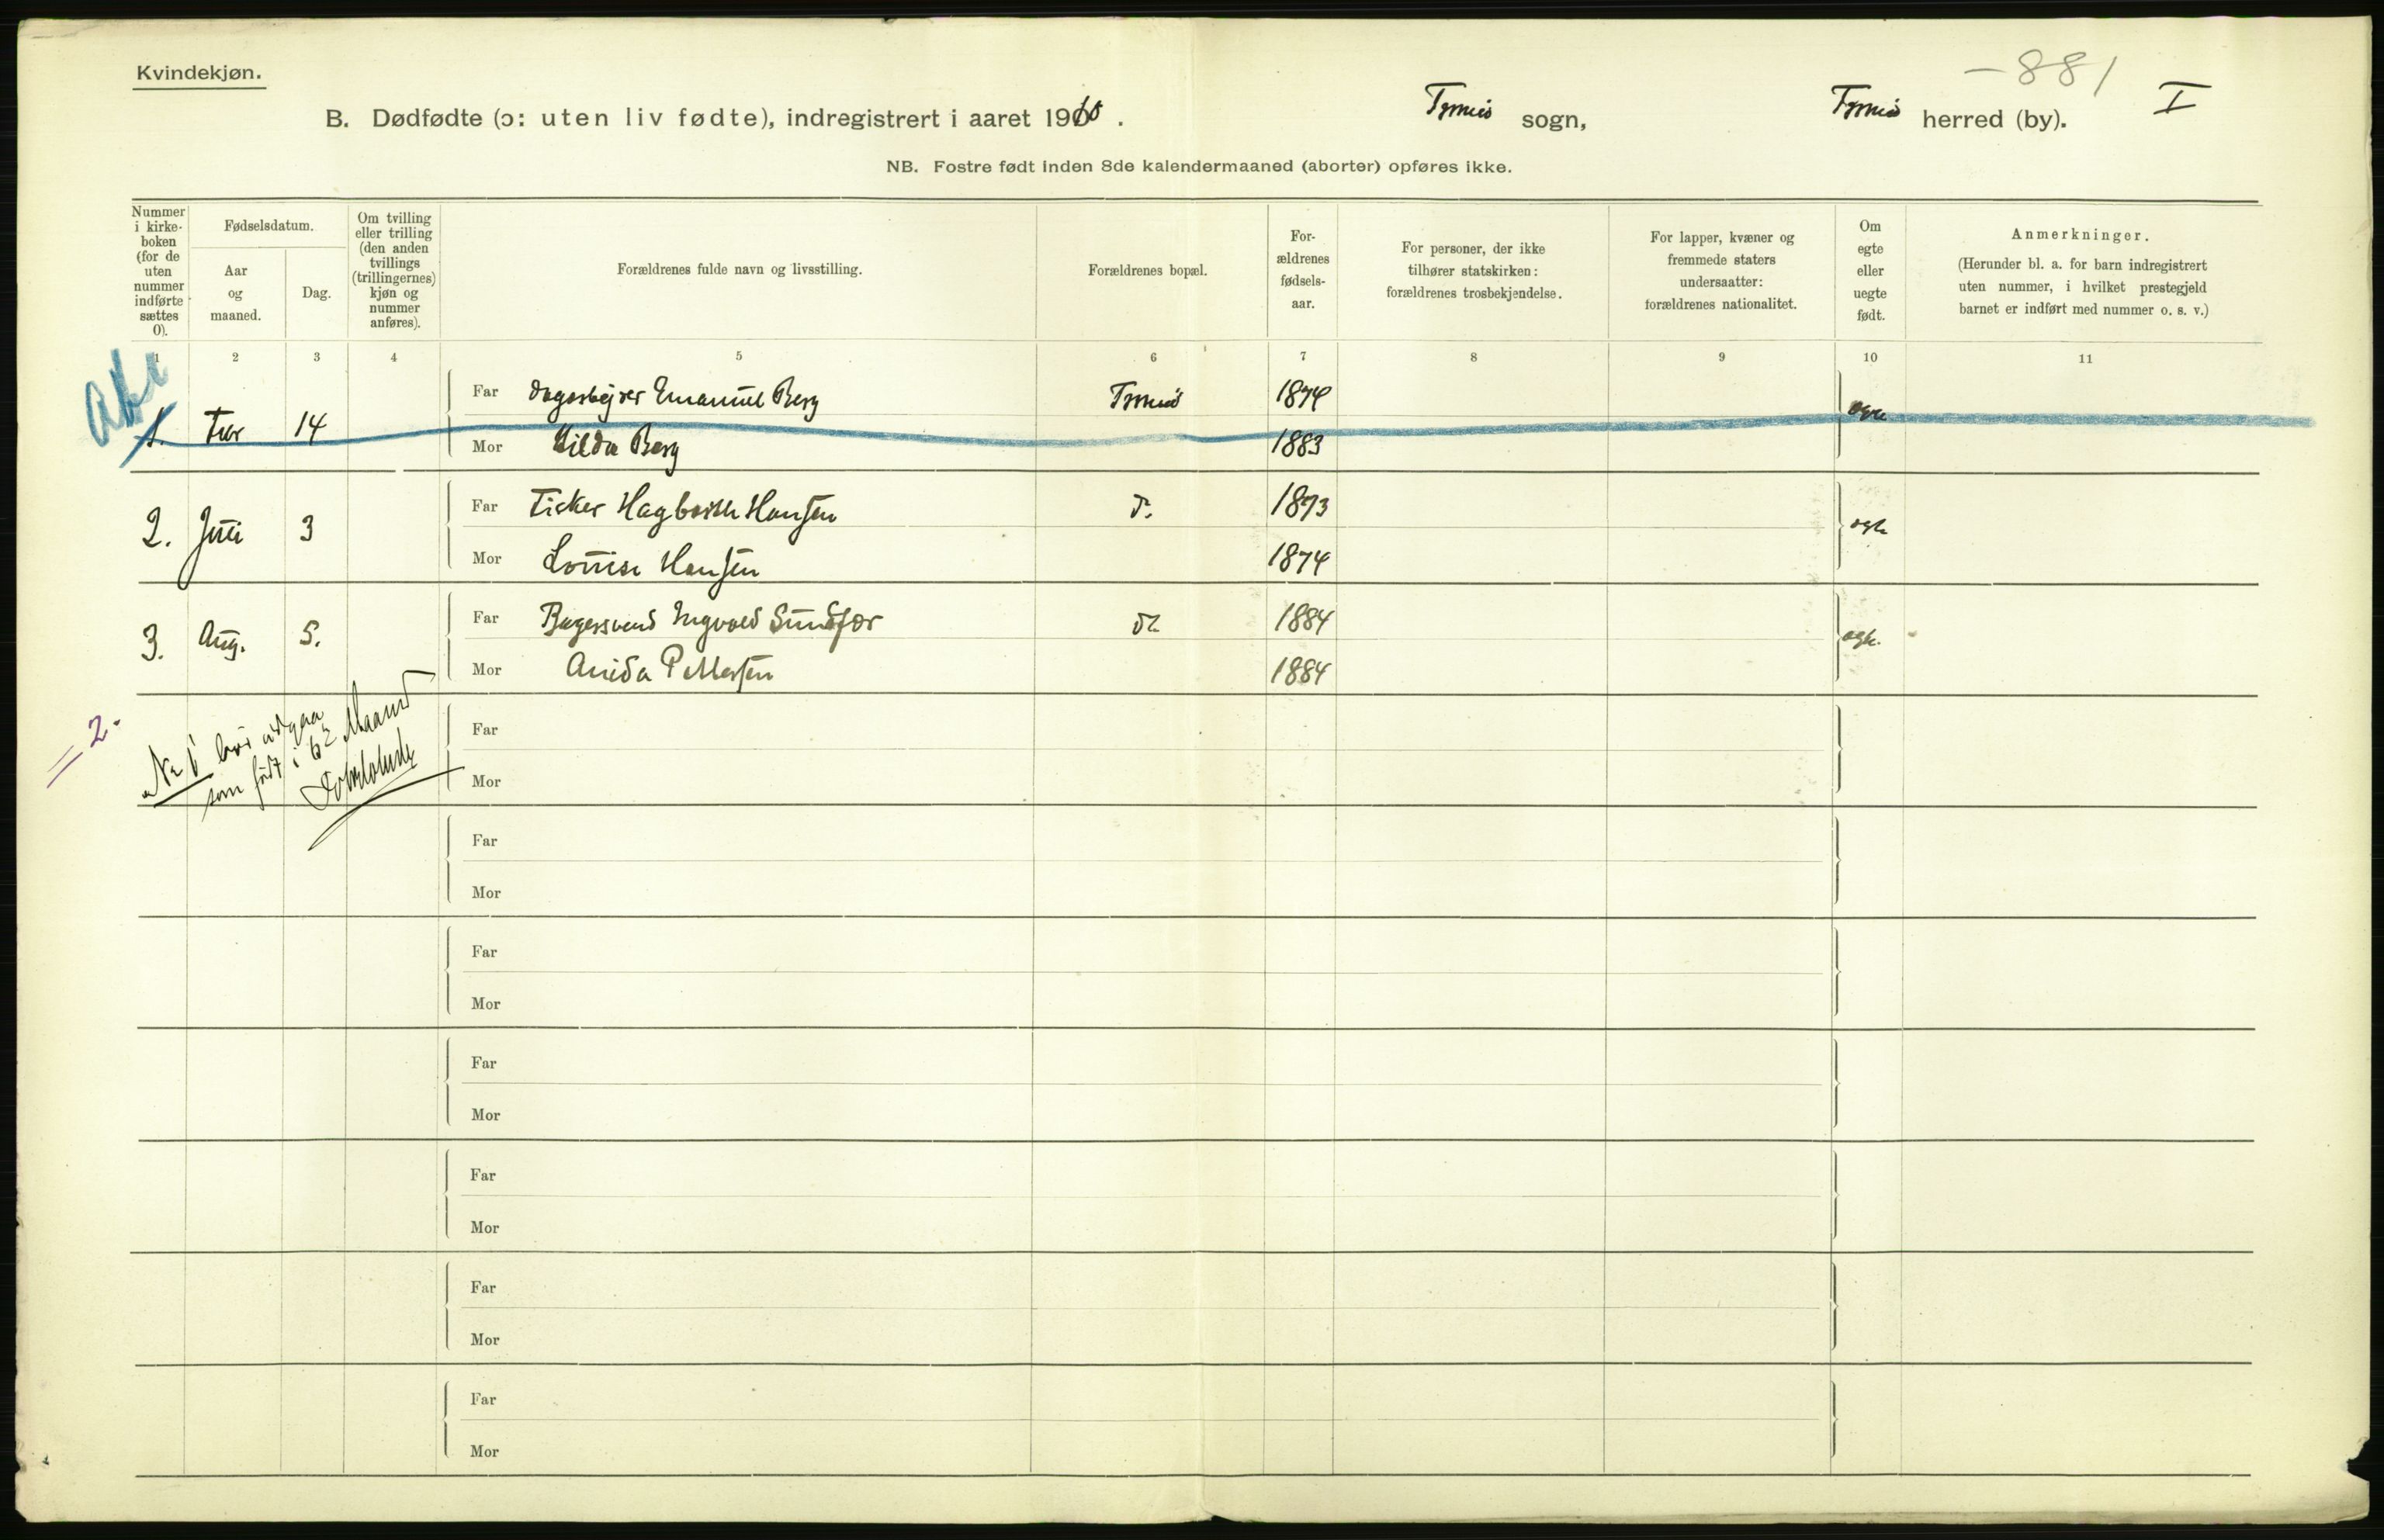 Kvindekjøn.
-881
B. Dødfødte (ɔ: uten liv fødte), indregistrert i aaret 1910. Tromsø sogn, Tromsø herred (by). I
NB. Fostre født inden 8de kalendermaaned (aborter) opføres ikke.
Nummer i kirke-boken (for de uten nummer indførte sættes 0).
Fødselsdatum.
Aar og maaned.
Dag.
Om tvilling eller trilling (den anden tvillings (trillingernes) kjøn og nummer anføres).
Forældrenes fulde navn og livsstilling.
Forældrenes bopæl.
For-ældrenes fødsels-aar.
For personer, der ikke tilhører statskirken: forældrenes trosbekjendelse.
For lapper, kvæner og fremmede staters undersaatter: forældrenes nationalitet.
Om egte eller uegte født.
Anmerkninger.
(Herunder bl. a. for barn indregistrert uten nummer, i hvilket prestegjeld barnet er indført med nummer o. s. v.)
1 2 3 4 5 6 7 8 9 10 11
Far Dagarbejder Emanuel Berg Tromsø 1874
1. Febr 14 egte
Mor Hilda Berg 1883
Far Fisker Hagbarth Hansen do 1873
2. Juli 3 egte
Mor Lovise Hansen 1874
Far Bagersvend Ingvald Sundfør do 1884
3. Aug. 5. egte.
Mor Anida Pettersen 1884
= 2.
No 1 bør udgaa
som født i 6te Maaned
Far
Mor
Far
Mor
Far
Mor
Far
Mor
Far
Mor
Far
Mor
Far
Mor